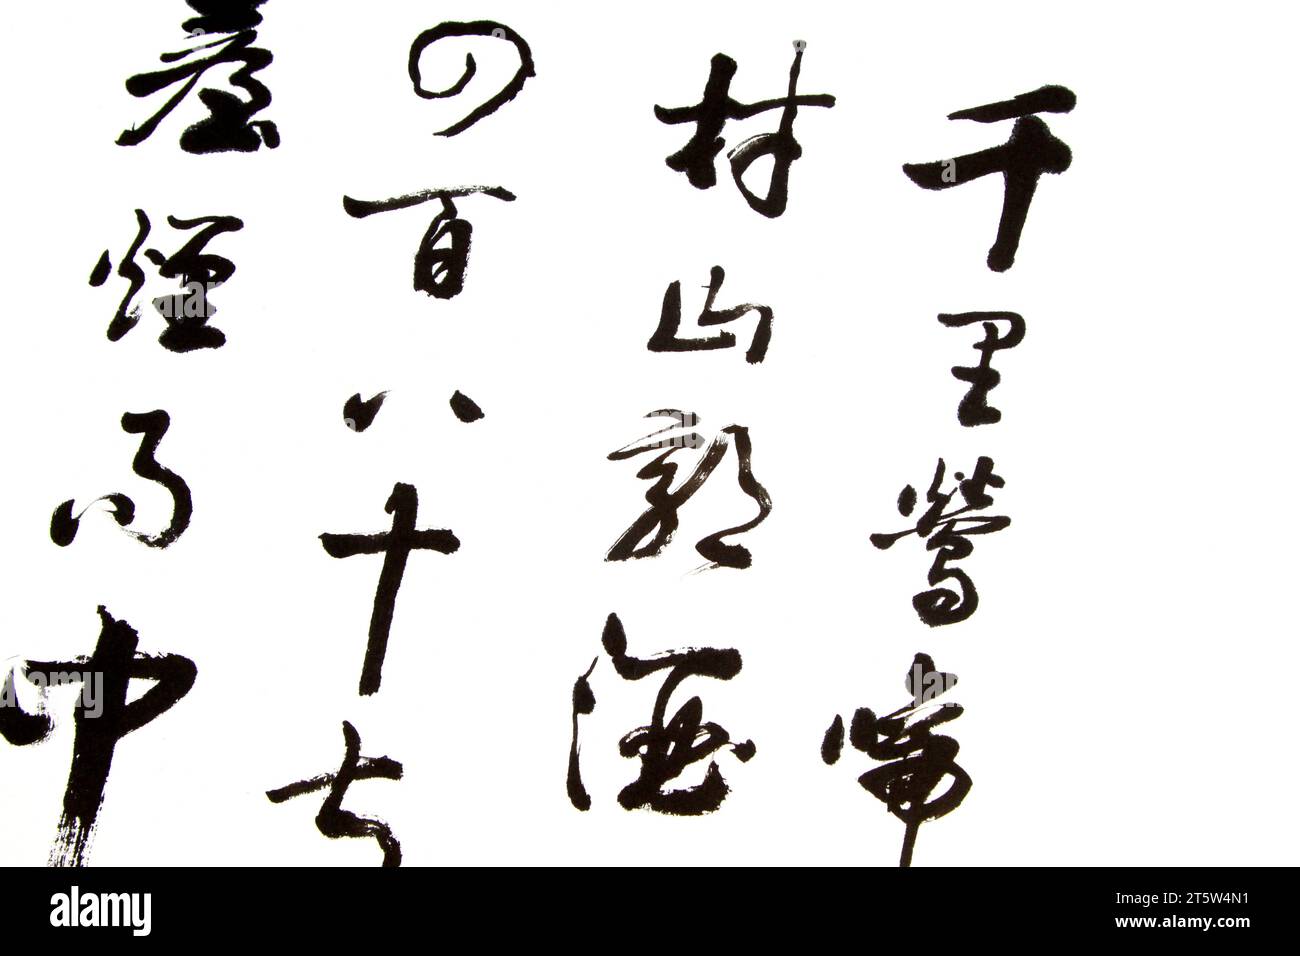 千里鶯啼
村山郭酒
四百八十寺
臺煙雨中
alamy
Image ID: 2T5W4N1
www.alamy.com